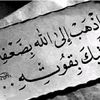 ذهب إلى الله بضعف
يك بقوته ...